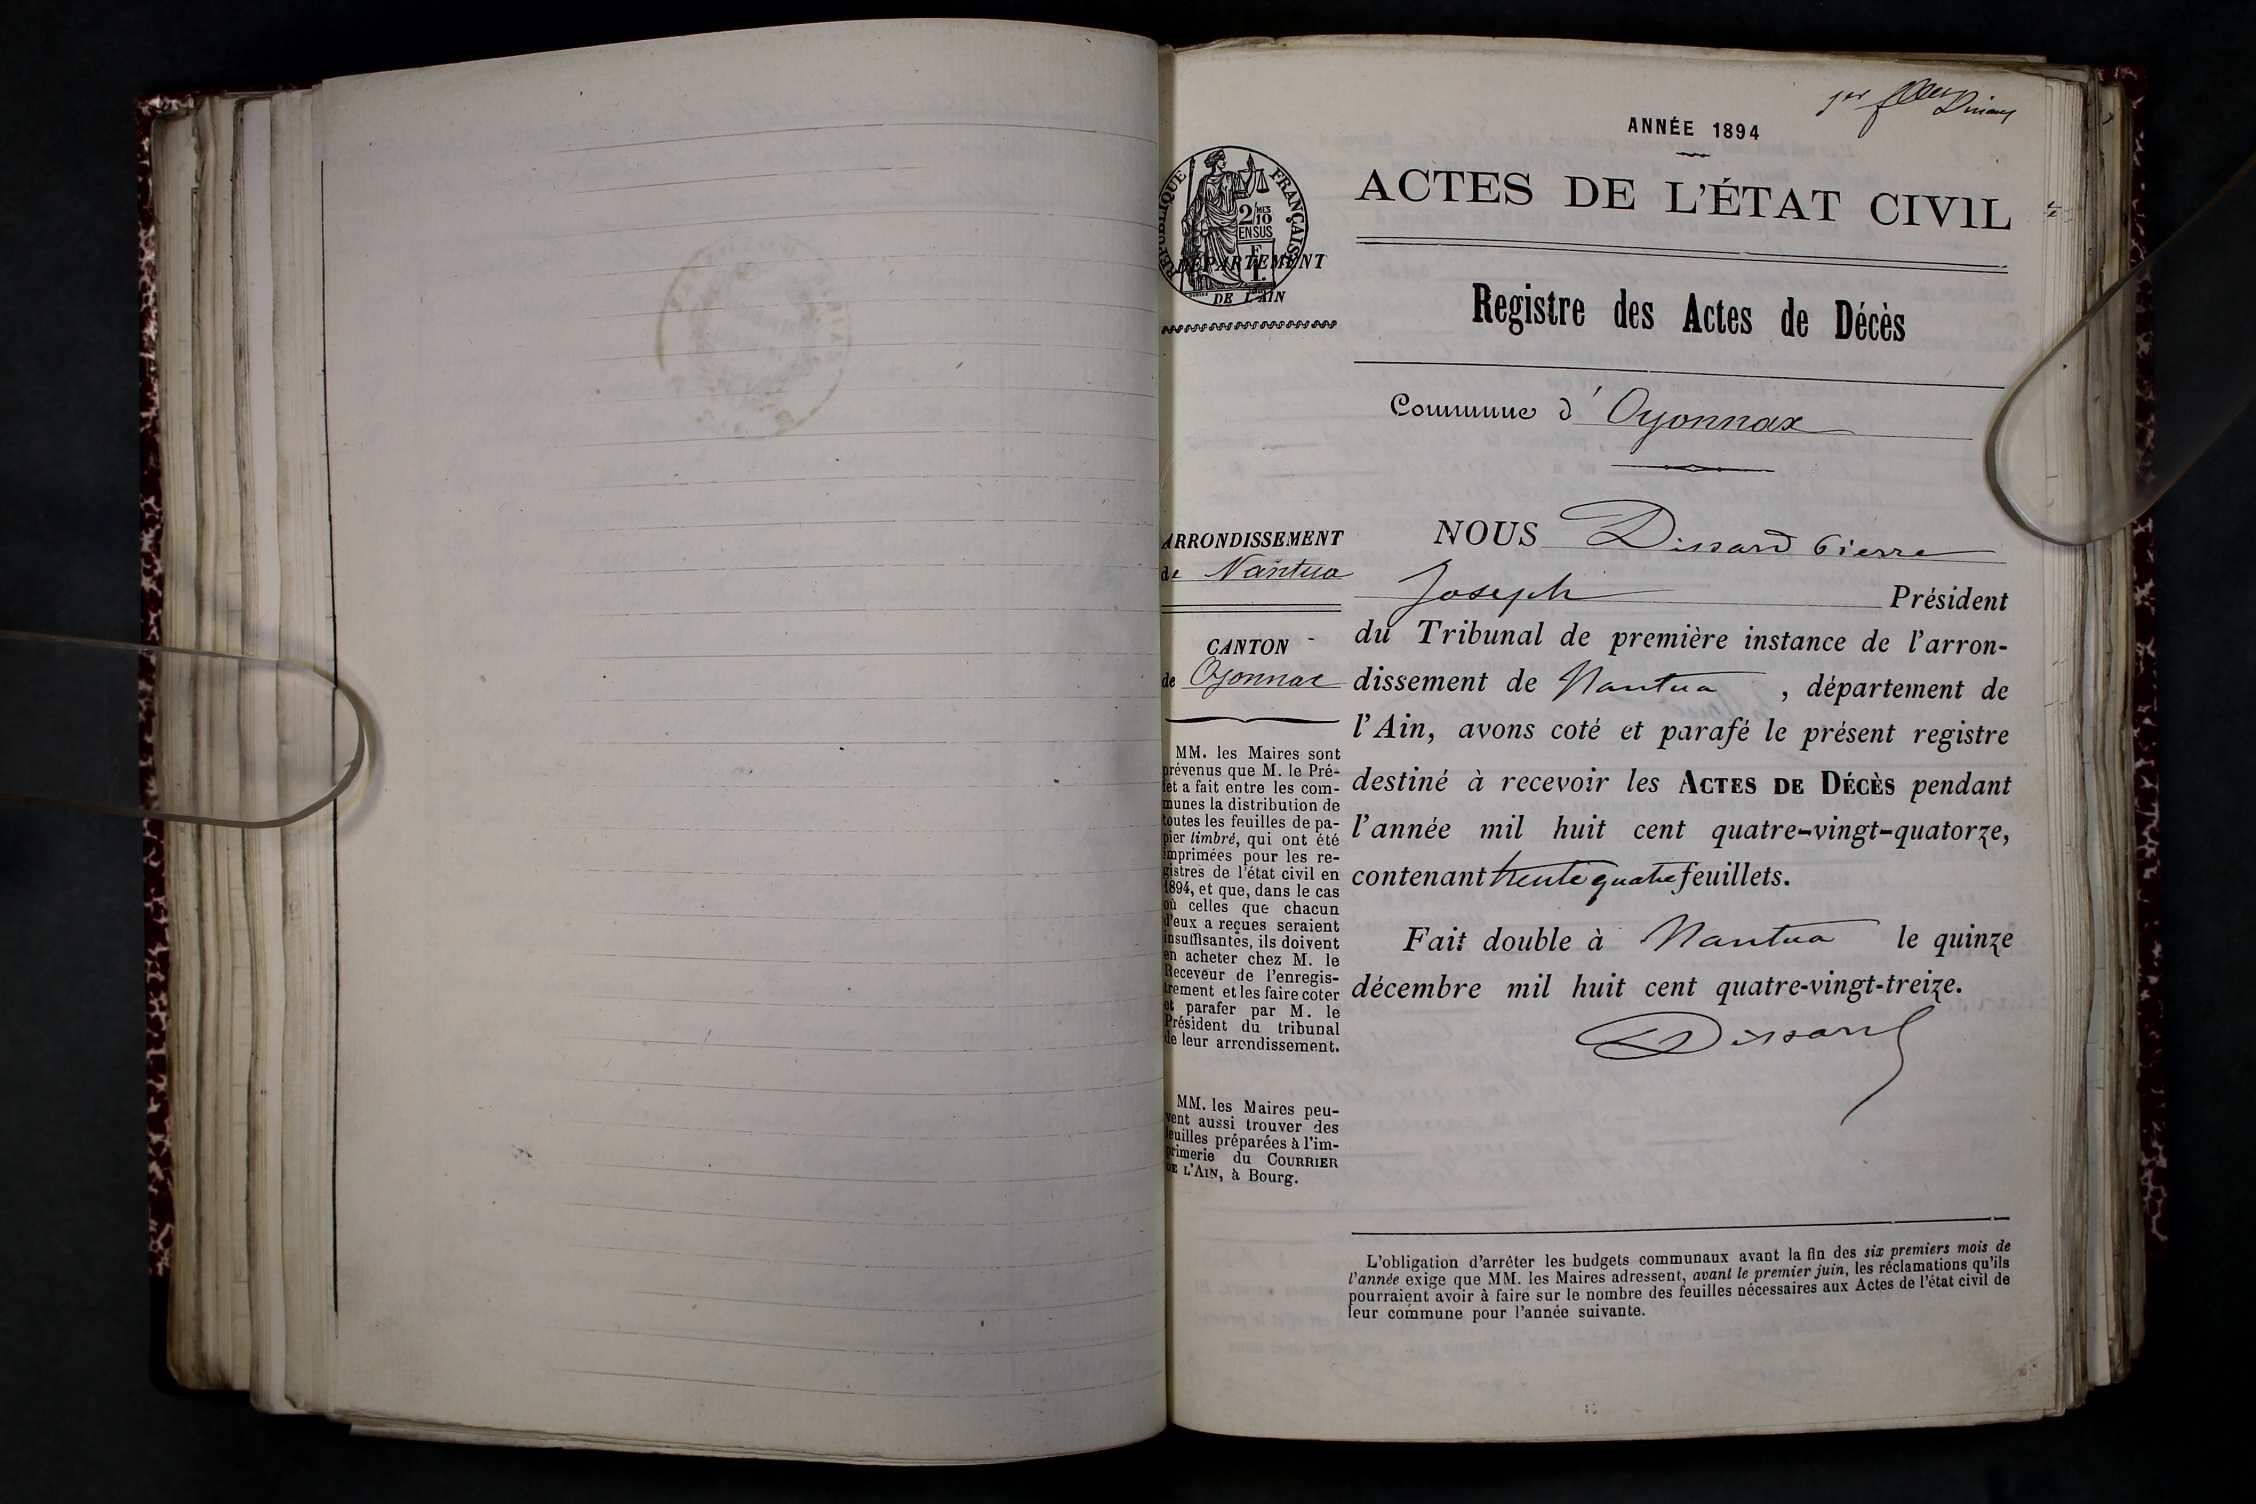 1er feuillet
Dissard
ANNÉE 1894
ACTES DE L'ÉTAT CIVIL
RÉPUBLIQUE FRANÇAISE
2/10 MES
EN SUS
DÉPARTEMENT
DE L'AIN
Registre des Actes de Décès
Commune d'Oyonnax
ARRONDISSEMENT
de Nantua
CANTON
de Oyonnax
MM. les Maires sont
prévenus que M. le Pré-
fet a fait entre les com-
munes la distribution de
toutes les feuilles de pa-
pier timbré, qui ont été
imprimées pour les re-
gistres de l'état civil en
1894, et que, dans le cas
où celles que chacun
d'eux a reçues seraient
insuffisantes, ils doivent
en acheter chez M. le
Receveur de l'enregis-
trement et les faire coter
et parafer par M. le
Président du tribunal
de leur arrondissement.
MM. les Maires peu-
vent aussi trouver des
feuilles préparées à l'im-
primerie du COURRIER
DE L'AIN, à Bourg.
NOUS Dissard Pierre
Joseph Président
du Tribunal de première instance de l'arron-
dissement de Nantua, département de
l'Ain, avons coté et parafé le présent registre
destiné à recevoir les ACTES DE DÉCÈS pendant
l'année mil huit cent quatre-vingt-quatorze,
contenant trente quatre feuillets.
Fait double à Nantua le quinze
décembre mil huit cent quatre-vingt-treize.
Dissard
L'obligation d'arrêter les budgets communaux avant la fin des six premiers mois de
l'année exige que MM. les Maires adressent, avant le premier juin, les réclamations qu'ils
pourraient avoir à faire sur le nombre des feuilles nécessaires aux Actes de l'état civil de
leur commune pour l'année suivante.